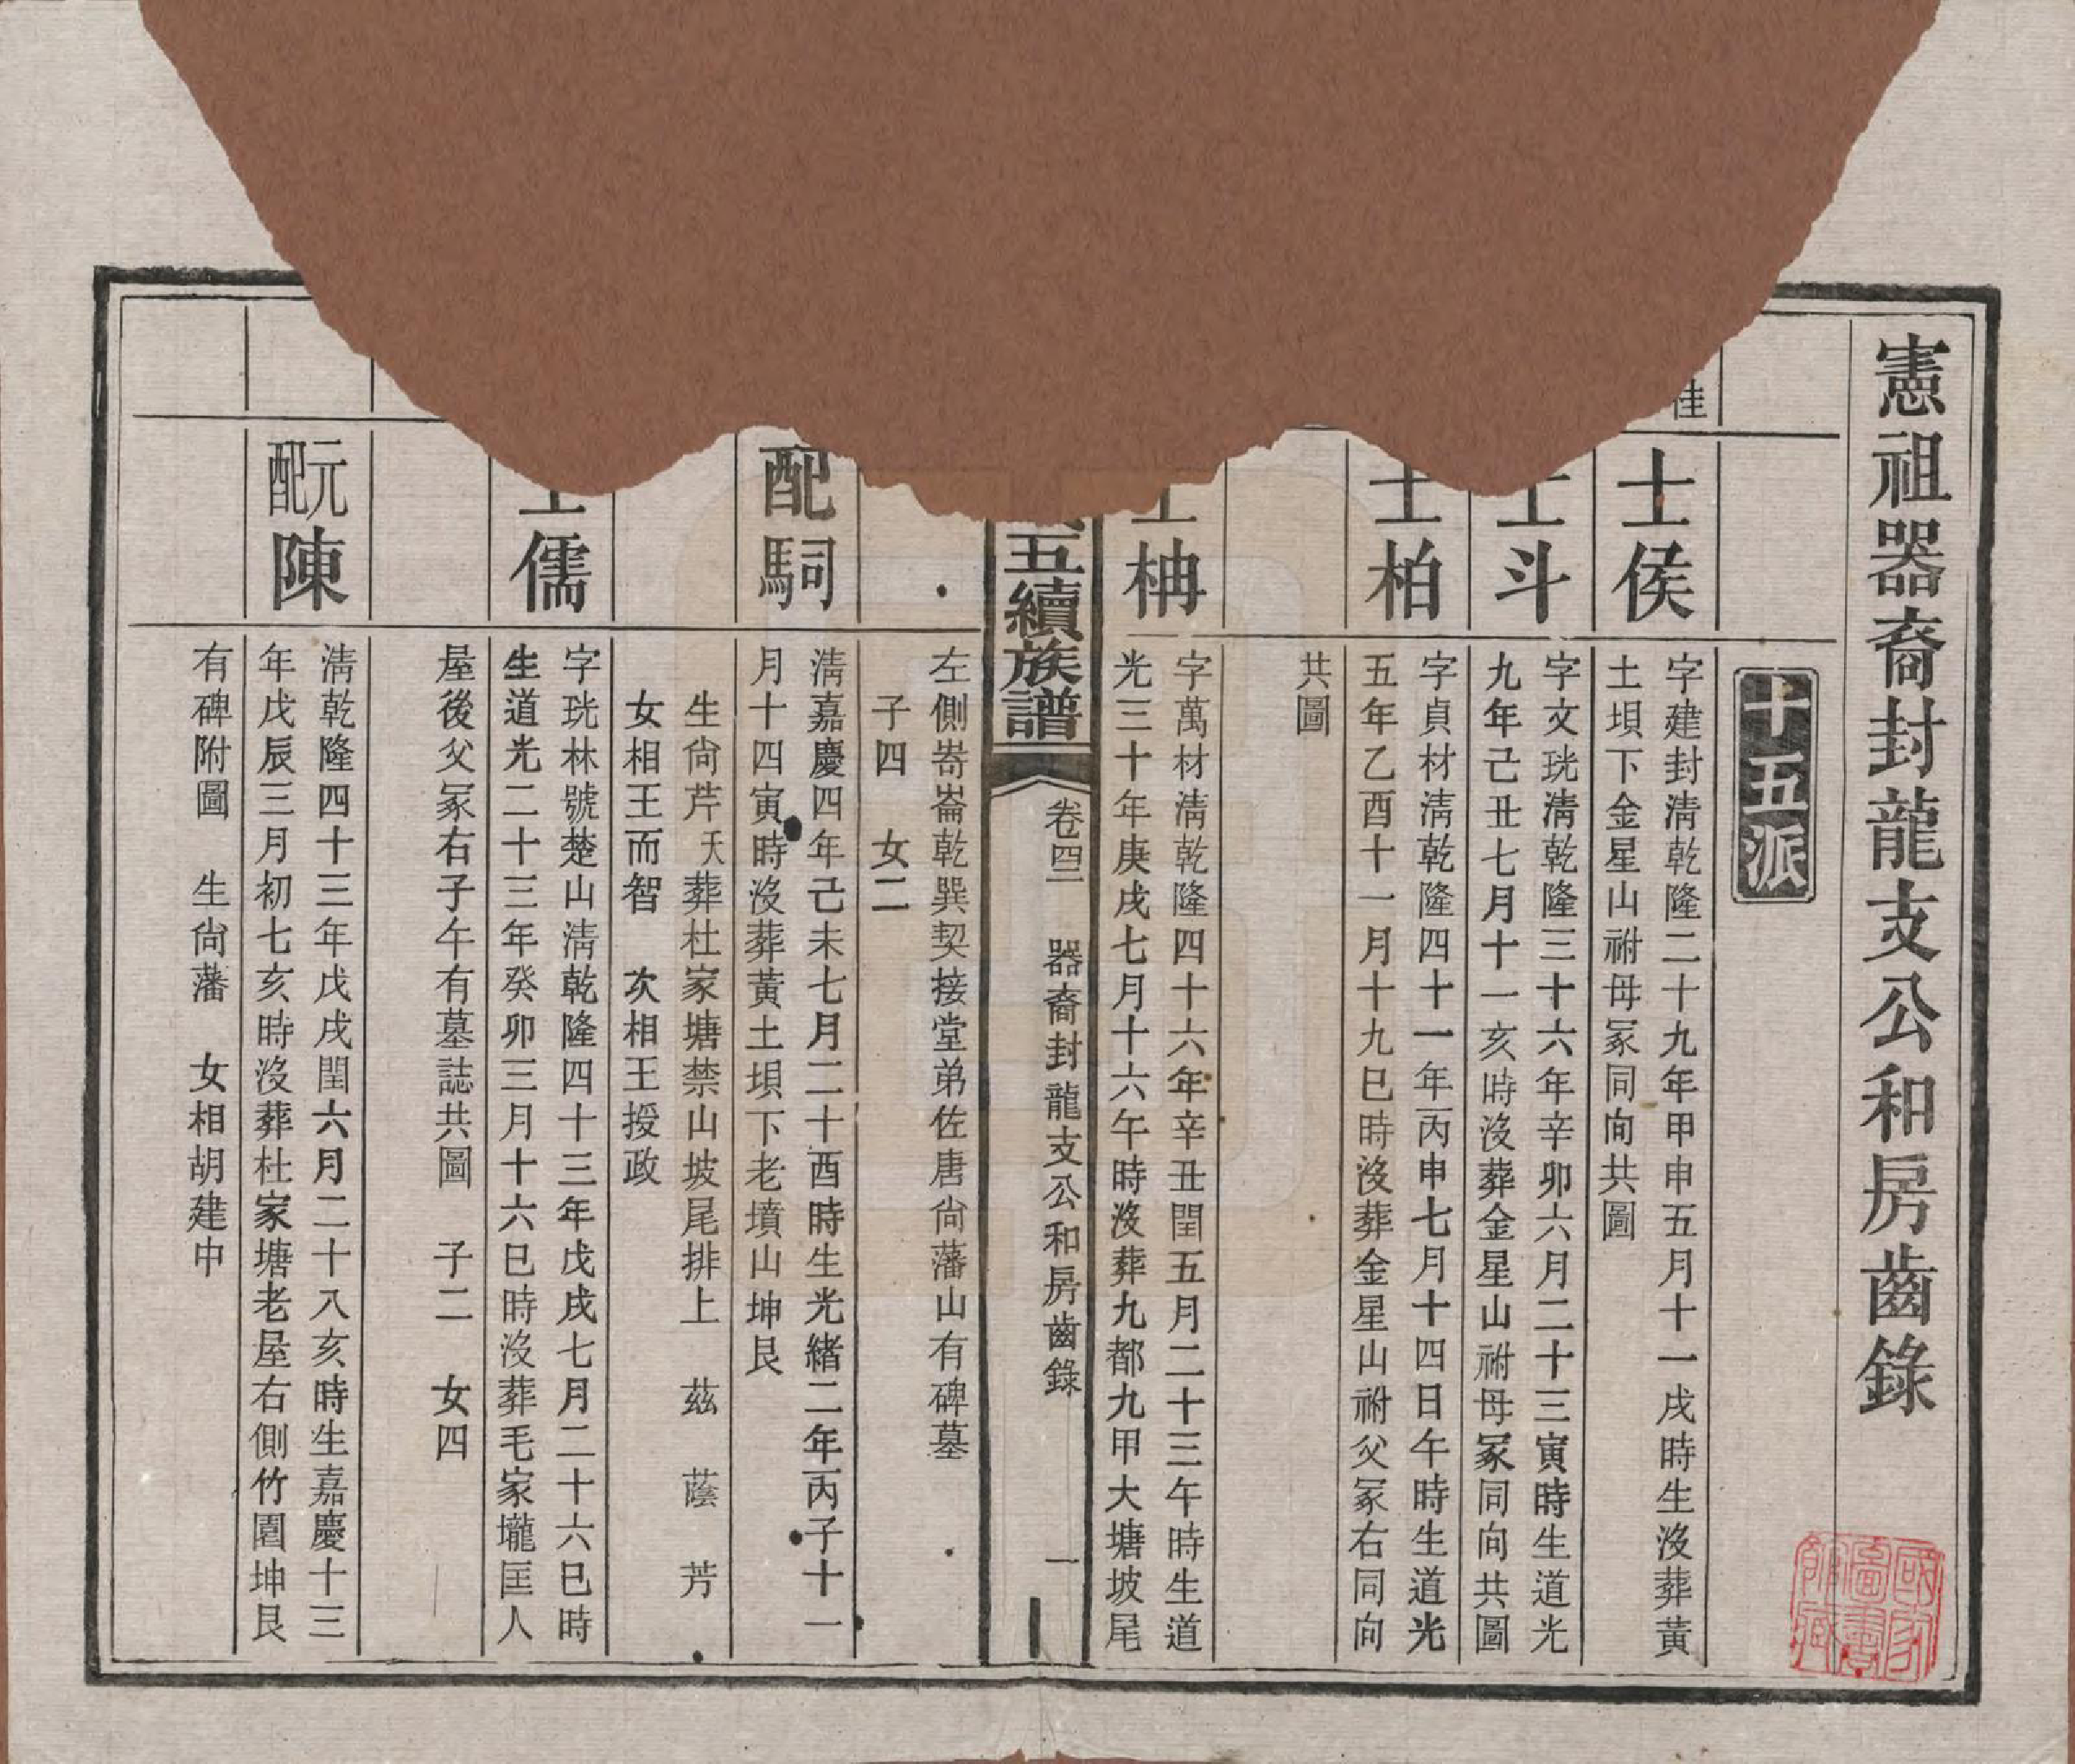 憲祖器裔封龍支公和房齒錄
十五派
桂
士侯
字建封淸乾隆二十九年甲申五月十一戌時生沒葬黃
土垻下金星山祔母冢同向共圖
士斗
字文珖淸乾隆三十六年辛卯六月二十三寅時生道光
九年己丑七月十一亥時沒葬金星山祔母冢同向共圖
士柏
字貞材淸乾隆四十一年丙申七月十四日午時生道光
五年乙酉十一月十九巳時沒葬金星山祔父冢右同向
共圖
士柟
字萬材淸乾隆四十六年辛丑閏五月二十三午時生道
光三十年庚戌七月十六午時沒葬九都九甲大塘坡尾
五續族譜
卷四二
器裔封龍支公和房齒錄
一
左側嵜崙乾巽契接堂弟佐唐尙藩山有碑墓
子四 女二
配駧
淸嘉慶四年己未七月二十酉時生光緒二年丙子十一
月十四寅時沒葬黃土垻下老墳山坤艮
生尙芹 夭葬杜家塘禁山坡尾排上 茲 蔭 芳
女相王而智 次相王授政
士儒
字珖林號楚山淸乾隆四十三年戊戌七月二十六巳時
生道光二十三年癸卯三月十六巳時沒葬毛家壠匡人
屋後父冢右子午有墓誌共圖 子二 女四
元配陳
淸乾隆四十三年戊戌閏六月二十八亥時生嘉慶十三
年戊辰三月初七亥時沒葬杜家塘老屋右側竹園坤艮
有碑附圖 生尙藩 女相胡建中
國家圖書館藏